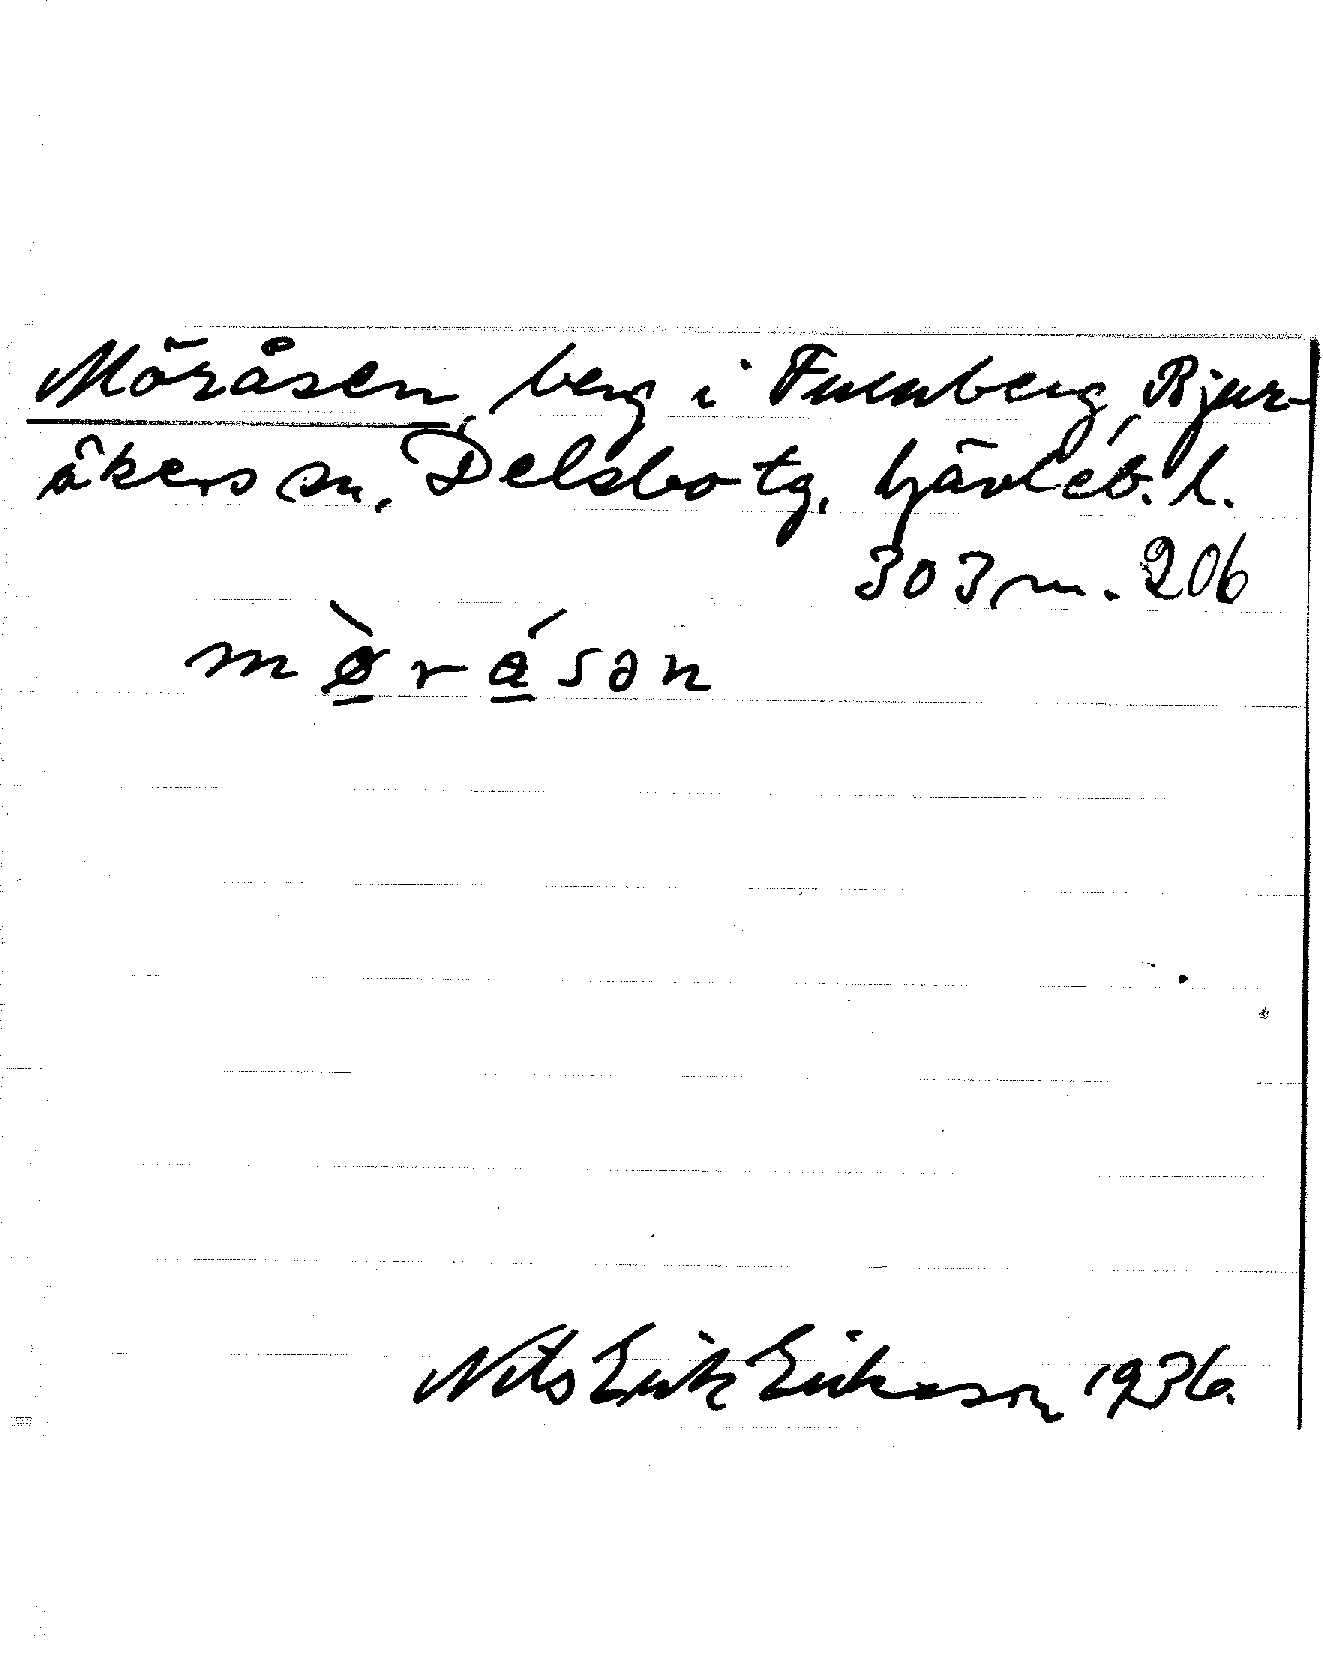 Möråsen, berg i Furuberg, Bjur-
åkers sn. Delsbo tg. Gävleb. l.
303 m. 206
mø̀råsən
Nils Erik Eriksson 1936.